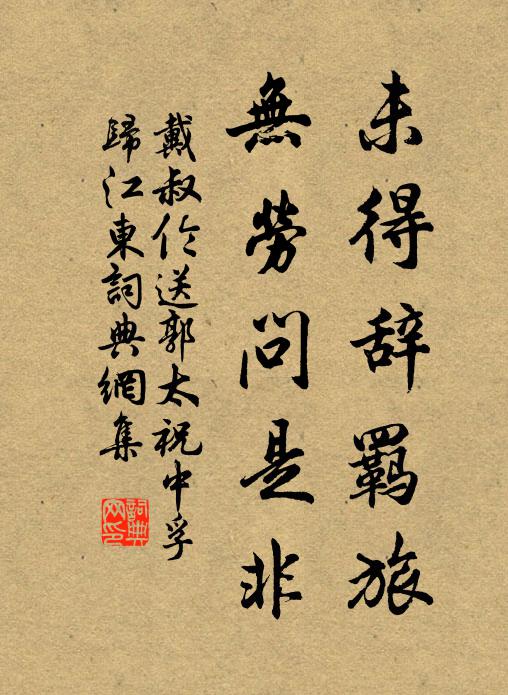 未得辞羈旅
無勞問是非
戴叔伦送郭太祝中孚
歸江東詞典網集
詞典
网印